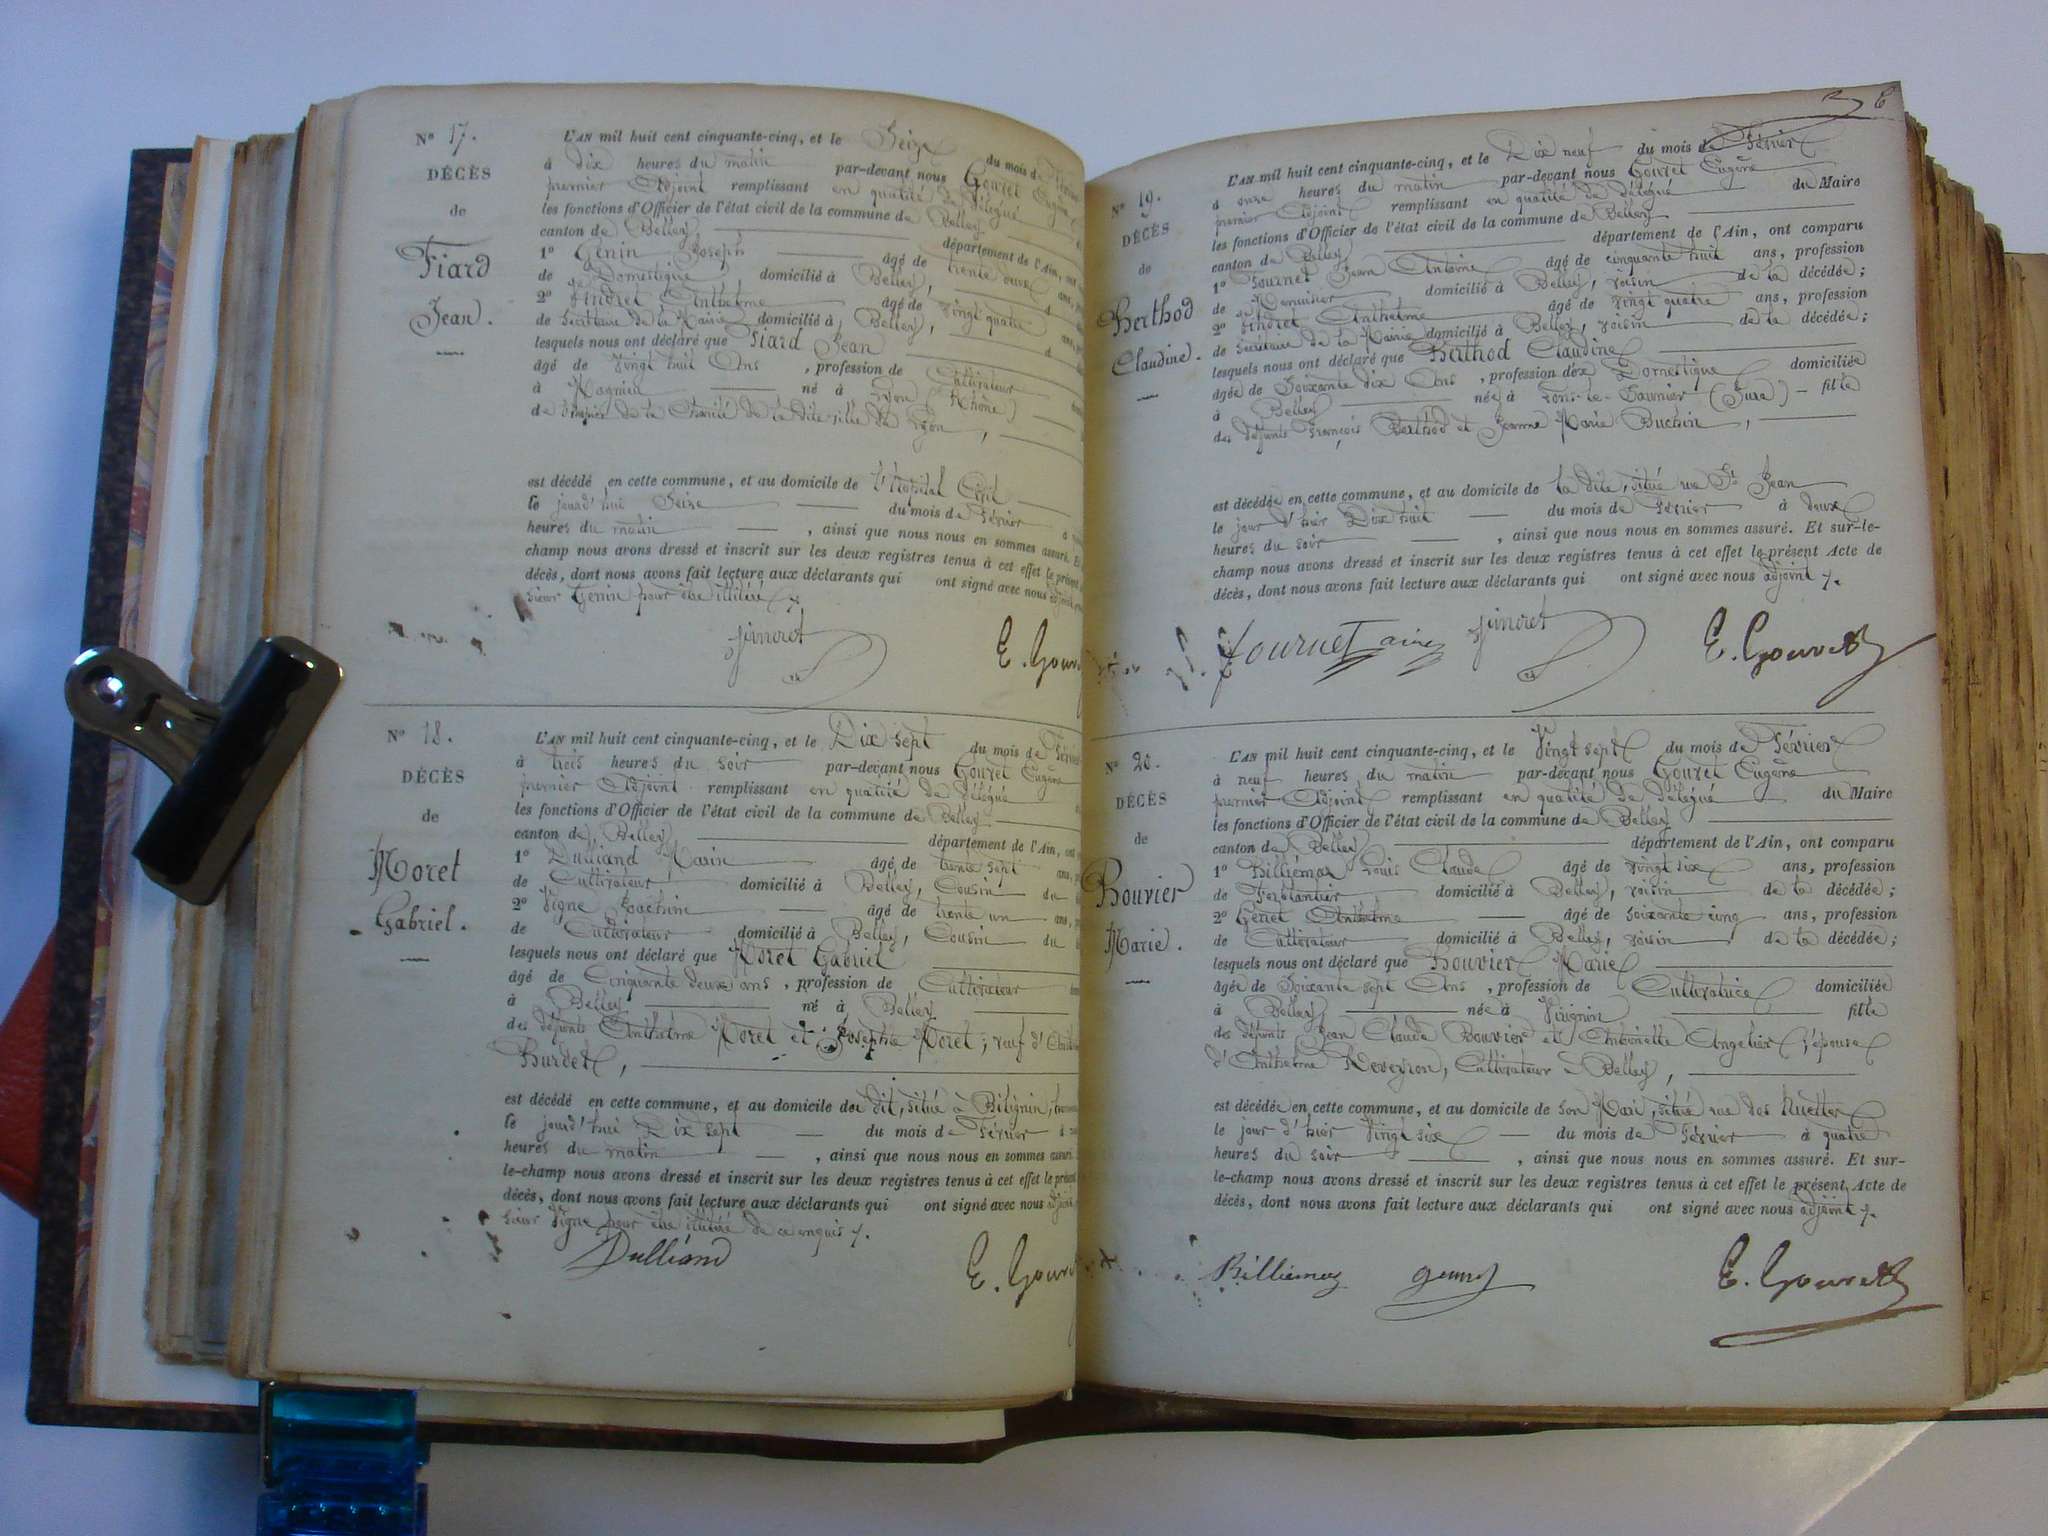 N° 17.
DÉCÈS
de
Fiard
Jean.
L'AN mil huit cent cinquante-cinq, et le Seize du mois de
à dix heures du matin par-devant nous Gouret Eugène
premier Adjoint remplissant en qualité de délégué
les fonctions d'Officier de l'état civil de la commune de Belley
canton de Belley département de l'Ain, ont
1° Genin Joseph âgé de trente
de Domestique domicilié à Belley,
2° Anthelme âgé de vingt quatre
de Secrétaire de la Mairie domicilié à Belley,
lesquels nous ont déclaré que Fiard Jean
âgé de vingt huit Ans, profession de Cultivateur
à Magnieu né à Lyon (Rhône)
de la Charité de la dite ville de Lyon,
est décédé en cette commune, et au domicile de l'hôpital Civil
le jourd'hui Seize du mois de Février
heures du matin, ainsi que nous nous en sommes assuré. Et
champ nous avons dressé et inscrit sur les deux registres tenus à cet effet le présent
décès, dont nous avons fait lecture aux déclarants qui ont signé avec nous
sieur Genin pour être illitéré
E. Gouret
N° 18.
DÉCÈS
de
Moret
Gabriel.
L'AN mil huit cent cinquante-cinq, et le Dix sept du mois de Février
à trois heures du soir par-devant nous Gouret Eugène
premier Adjoint remplissant en qualité de délégué
les fonctions d'Officier de l'état civil de la commune de Belley
canton de Belley département de l'Ain, ont
1° Dulliand Marin âgé de trente sept ans,
de Cultivateur domicilié à Belley, Cousin du
2° Vigne Joachim âgé de trente un ans,
de Cultivateur domicilié à Belley, Cousin du
lesquels nous ont déclaré que Moret Gabriel
âgé de Cinquante deux ans, profession de Cultivateur
à Belley né à Belley
des défunts Anthelme Moret et Josephte Moret; veuf d'
Burdet,
est décédé en cette commune, et au domicile du dit, situé à Bitignin,
le jourd'hui Dix sept du mois de Février à
heures du matin, ainsi que nous nous en sommes assuré.
le-champ nous avons dressé et inscrit sur les deux registres tenus à cet effet le présent
décès, dont nous avons fait lecture aux déclarants qui ont signé avec nous
sieur Vigne pour être illitéré de ce enquis
Dulliand E. Gouret
N° 19.
DÉCÈS
de
Berthod
Claudine.
L'AN mil huit cent cinquante-cinq, et le Dix neuf du mois de Février
à onze heures du matin par-devant nous Gouret Eugène
premier Adjoint remplissant en qualité de délégué du Maire
les fonctions d'Officier de l'état civil de la commune de Belley
canton de Belley département de l'Ain, ont comparu
1° Fournet Jean Antoine âgé de cinquante huit ans, profession
de Menuisier domicilié à Belley, voisin de la décédée;
2° Anthelme âgé de vingt quatre ans, profession
de Secrétaire de la Mairie domicilié à Belley, voisin de la décédée;
lesquels nous ont déclaré que Berthod Claudine
âgée de Soixante dix Ans, profession de Domestique domiciliée
à Belley née à Lons-le-Saunier (Jura) fille
des défunts François Berthod et Jeanne Marie Buchin,
est décédée en cette commune, et au domicile de la dite, situé rue St Jean
le jour d'hier Dix huit du mois de Février à deux
heures du soir, ainsi que nous nous en sommes assuré. Et sur-le-
champ nous avons dressé et inscrit sur les deux registres tenus à cet effet le présent Acte de
décès, dont nous avons fait lecture aux déclarants qui ont signé avec nous adjoint
fournet ainé E. Gouret
N° 20.
DÉCÈS
de
Bouvier
Marie.
L'AN mil huit cent cinquante-cinq, et le Vingt sept du mois de Février
à neuf heures du matin par-devant nous Gouret Eugène
premier Adjoint remplissant en qualité de délégué du Maire
les fonctions d'Officier de l'état civil de la commune de Belley
canton de Belley département de l'Ain, ont comparu
1° Billiémaz Louis Claude âgé de vingt six ans, profession
de Ferblantier domicilié à Belley, voisin de la décédée;
2° Genet Anthelme âgé de soixante cinq ans, profession
de Cultivateur domicilié à Belley, voisin de la décédée;
lesquels nous ont déclaré que Bouvier Marie
âgée de Soixante sept Ans, profession de Cultivatrice domiciliée
à Belley, née à Virignin fille
des défunts Jean Claude Bouvier et Antoinette Angelier, épouse
d'Anthelme Reveyron, Cultivateur à Belley,
est décédée en cette commune, et au domicile de son Mari, situé rue des
le jour d'hier Vingt six du mois de Février à quatre
heures du soir, ainsi que nous nous en sommes assuré. Et sur-
le-champ nous avons dressé et inscrit sur les deux registres tenus à cet effet le présent Acte de
décès, dont nous avons fait lecture aux déclarants qui ont signé avec nous adjoint
Billiemaz genet E. Gouret